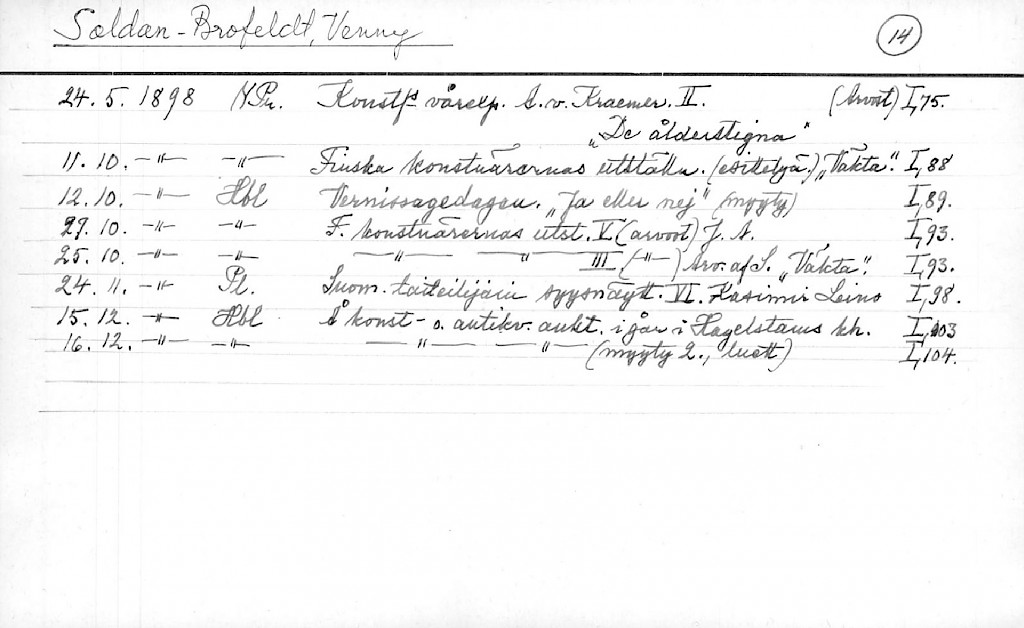 Soldan-Brofeldt, Venny 14
24.5. 1898 N.Pr. Konstf:s vårexp. A. v. Kraemer. II. (Arvost) I,75.
"De ålderstigna"
11.10. -"- -"- Finska konstnärernas utställn. (esittelyä.) "Väkta". I,88
12.10. -"- Hbl Vernissagedagen. "Ja eller nej" (myyty) I,89.
27.10. -"- -"- F. konstnärernas utst. V (arvost) J. A. I,93.
25.10. -"- -"- -"- -"- III (-"-) Arv. af S. "Väkta". I,93.
24.11. -"- Pl. Suom. taiteilijain syysnäytt. VI. Kasimir Leino I,98.
15.12. -"- Hbl Å konst- o. antikv. aukt. i går i Hagelstams bh. I,103
16.12. -"- -"- -"- -"- (myyty 2., luett) I,104.